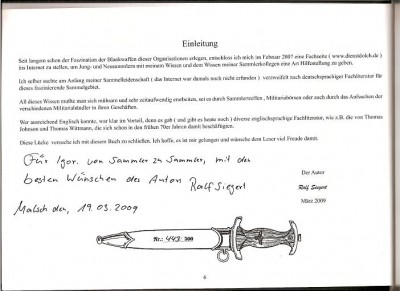 Einleitung
Seit langem schon der Faszination der Blankwaffen dieser Organisationen erlegen, entschloss ich mich im Februar 2007 eine Fachseite ( www.dienstdolch.de )
ins Internet zu stellen, um Jung- und Neusammlern mit meinem Wissen und dem Wissen meiner Sammlerkollegen eine Art Hilfestellung zu geben.
Ich selber suchte am Anfang meiner Sammelleidenschaft ( das Internet war damals noch nicht erfunden ) verzweifelt nach deutschsprachiger Fachliteratur für
dieses faszinierende Sammelgebiet.
All dieses Wissen mußte man sich mühsam und sehr zeitaufwendig erarbeiten, sei es durch Sammlertreffen, Militariabörsen oder auch durch das Aufsuchen der
verschiedenen Militariahändler in ihren Geschäften.
Wer ausreichend Englisch konnte, war klar im Vorteil, denn es gab ( und gibt es heute noch ) diverse englischsprachige Fachliteratur, wie z.B. die von Thomas
Johnson und Thomas Wittmann, die sich schon in den frühen 70er Jahren damit beschäftigten.
Diese Lücke versuche ich mit diesem Buch zu schließen. Ich hoffe, es ist mir gelungen und wünsche dem Leser viel Freude damit.
Für Igor. von Sammler zu Sammler, mit den
besten Wünschen des Autors Ralf Siegert
Malsch den, 19.03.2009
Der Autor
Ralf Siegert
März 2009
Nr.: 443 / 300
6